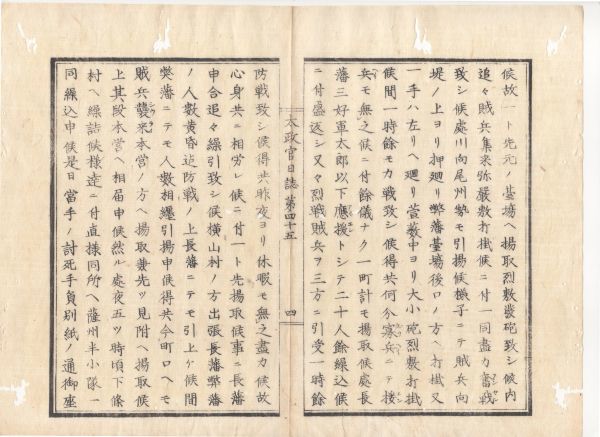 候故一ト先元ノ臺場ヘ揚取烈敷發砲致シ候内
追々賊兵集来弥嚴敷打掛候ニ付一同盡力奮戦
致シ候處川向尾州勢モ引揚候振子ニテ賊兵向
堤ノ上ヨリ押廻リ弊藩臺場後口ノ方ヘ打掛又
一手ハ左リヘ廻リ萱藪中ヨリ大小砲烈敷打掛
候間一時餘モ力戦致シ候得共何分寡兵ニテ接
兵モ無之候ニ付餘儀ナク一町計モ揚取候處長
藩三好軍太郎以下應援トシテ二十人餘繰込候
ニ付盛返シ又々烈戦賊兵ヲ三方ニ引受一時餘
太政官日誌第四十五
四
防戦致シ候得共昨夜ヨリ休暇モ無之盡力候故
心身共ニ相労レ候ニ付一ト先揚取候事ニ長藩
申合追々繰引致シ候横山村ノ方出張長藩弊藩
ノ人數黄昏迠防戦ノ上長藩ニテモ引上ケ候間
弊藩ニテモ人數相纏引揚申候得共今町口ヘモ
賊兵襲来本營ノ方ヘ揚取兼先ツ見附ヘ揚取候
上其段本營ヘ相届申候然ル處夜五ツ時頃下條
村ヘ繰詰候様達ニ付直様同所ヘ薩州半小隊一
同繰込申候是日當手ノ討死手負別紙ノ通御座